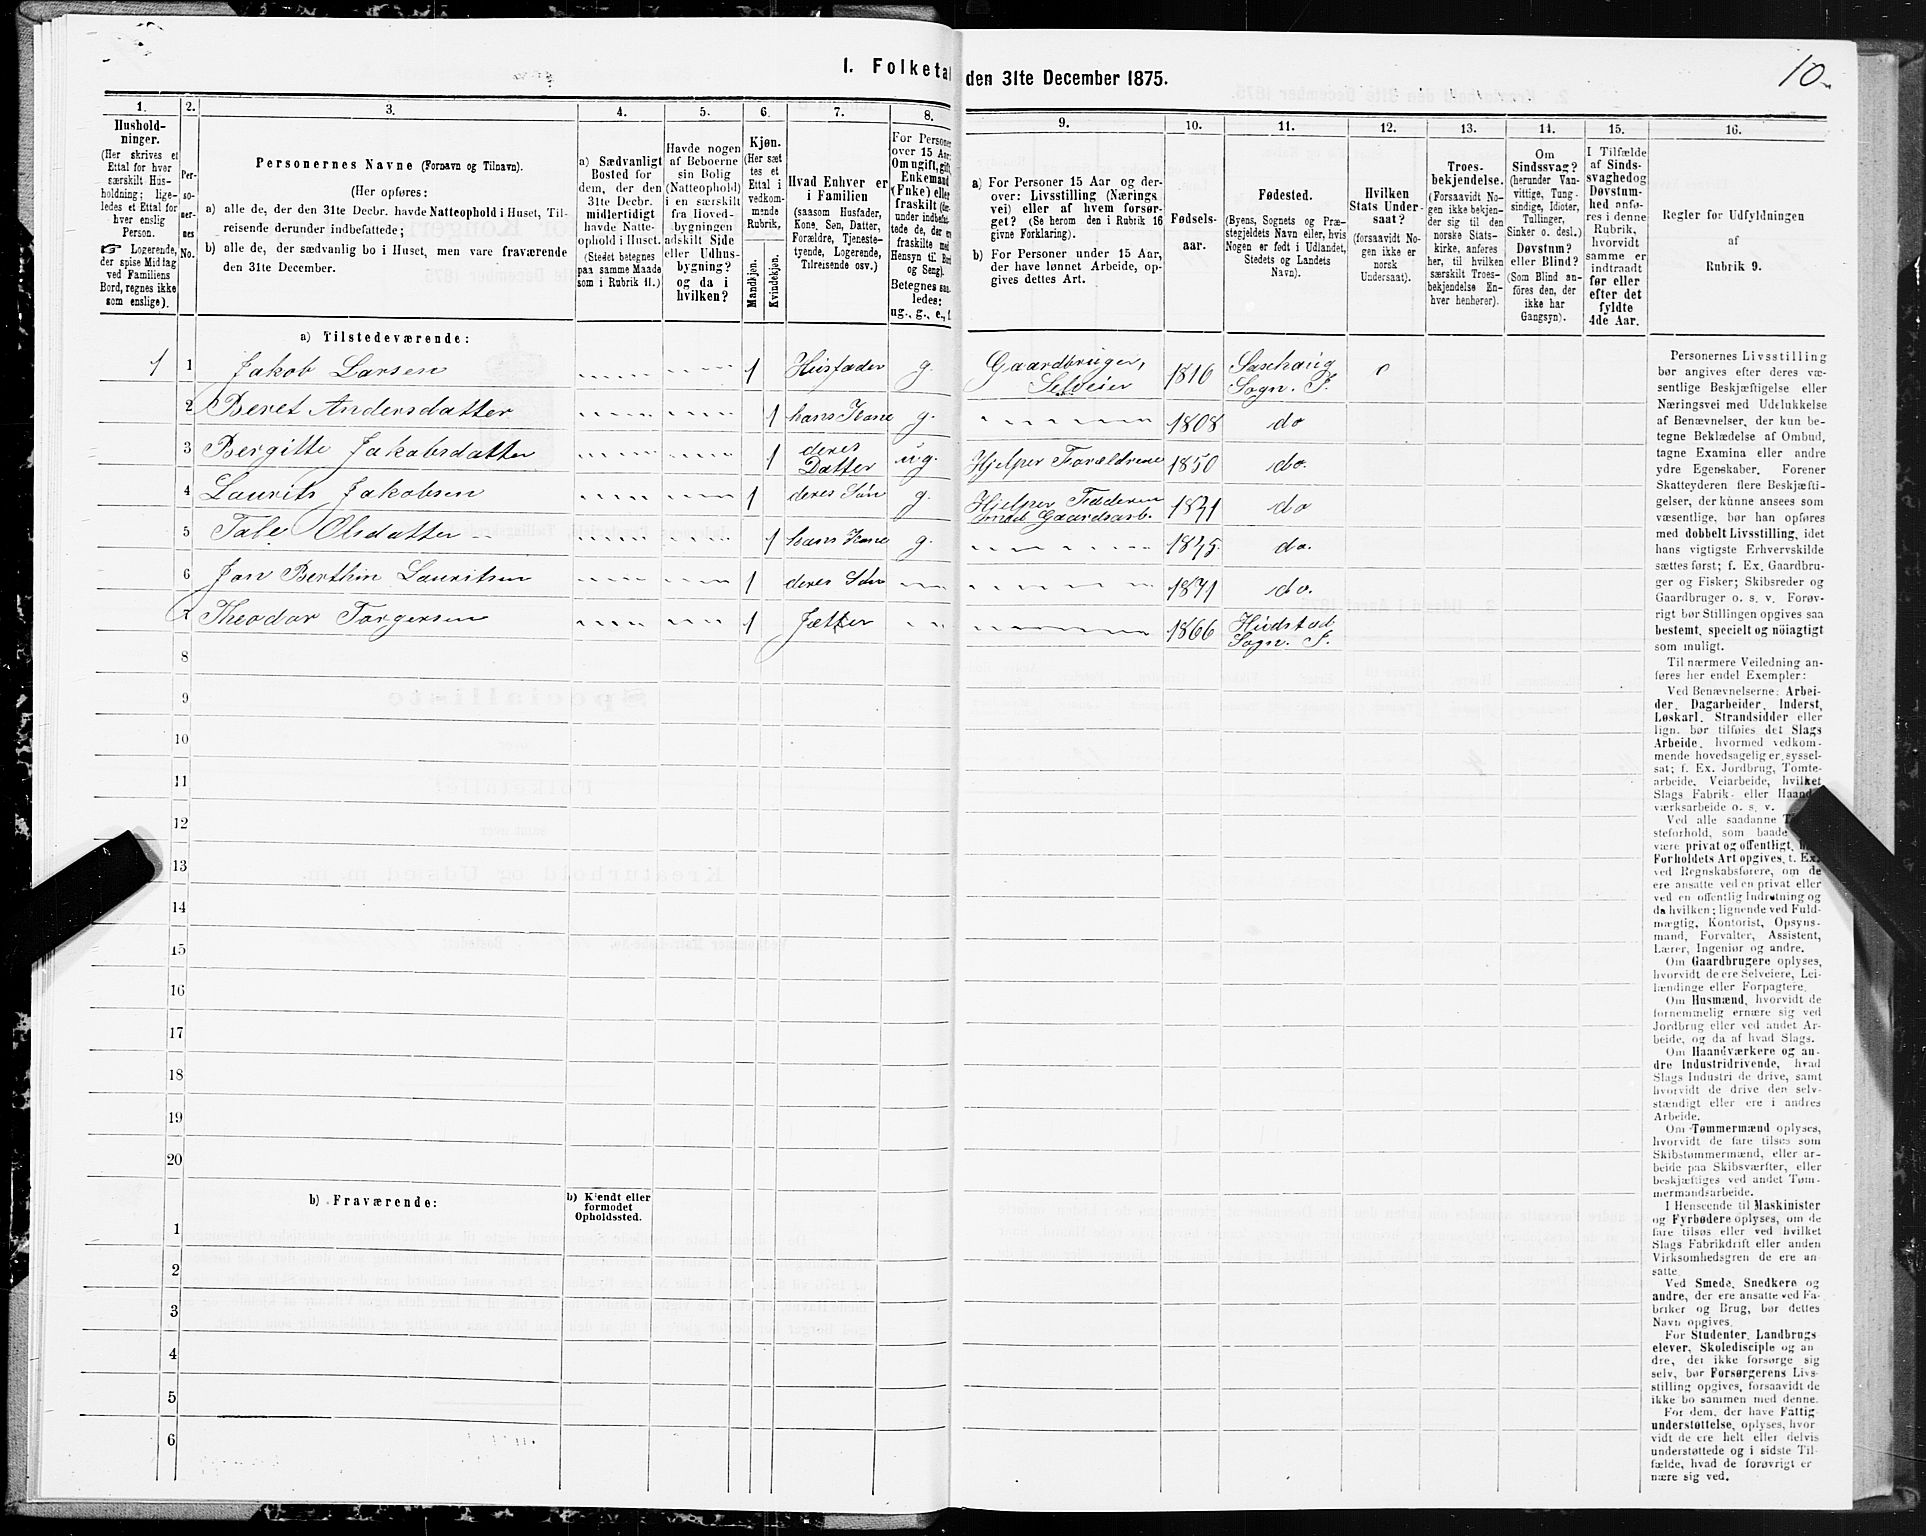 I. Folketal den 31te December 1875.
10.
1.
Hushold-
ninger.
(Her skrives et
Ettal for hver
særskilt Hus-
holdning; lige-
ledes et Ettal for
hver enslig
Person.
☞ Logerende,
der spise Middag
ved Familiens
Bord, regnes ikke
som enslige).
2.
Per-
so-
ner-
nes
No.
3.
Personernes Navne (Fornavn og Tilnavn).
(Her opføres:
a) alle de, der den 31te Decbr. havde Natteophold i Huset, Til-
reisende derunder indbefattede;
b) alle de, der sædvanlig bo i Huset, men vare fraværende
den 31te December.
4.
a) Sædvanligt
Bosted for
dem, der den
31te Decbr.
midlertidigt
havde Natte-
ophold i Huset.
(Stedet betegnes
paa samme Maade
som i Rubrik 11.)
5.
Havde nogen
af Beboerne
sin Bolig
(Natteophold)
i en særskilt
fra Hoved-
bygningen
adskilt Side
eller Udhus-
bygning?
og da i
hvilken?
6.
Kjøn.
(Her sæt
tes et
Ettal i
vedkom-
mende
Rubrik.
Mandkjøn.
Kvindekjøn.
7.
Hvad Enhver er
i Familien
(saasom Husfader,
Kone, Søn, Datter,
Forældre, Tjeneste-
tyende, Logerende,
Tilreisende osv.)
8.
For Personer
over 15 Aar:
Om ugift, gift,
Enkemand
(Enke) eller
fraskilt (der-
under indbefat-
tede de, der ere
fraskilte med
Hensyn til Bord
og Seng).
Betegnes saa-
ledes:
ug., g., e., f.
9.
a) For Personer 15 Aar og der-
over: Livsstilling (Nærings
vei) eller af hvem forsør-
get? (Se herom den i Rubrik 16
givne Forklaring).
b) For Personer under 15 Aar,
der have lønnet Arbeide, op-
gives dettes Art.
10.
Fødsels-
aar.
11.
Fødested.
(Byens, Sognets og Præ-
stegjeldets Navn eller, hvis
Nogen er født i Udlandet,
Stedets og Landets
Navn).
12.
Hvilken
Stats Under-
saat?
(forsaavidt No-
gen ikke er
norsk
Undersaat).
13.
Troes-
bekjendelse.
(Forsaavidt No-
gen ikke bekjen-
der sig til den
norske Stats-
kirke, anføres
her, til hvilken
særskilt Troes-
bekjendelse En-
hver henhører).
14.
Om
Sindssvag?
(herunder Van-
vittige, Tung-
sindige, Idioter,
Tullinger,
Sinker o. desl.)
Døvstum?
eller Blind?
(Som Blind an-
føres den, der
ikke har
Gangsyn).
15.
I Tilfælde
af Sinds-
svaghed og
Døvstum-
hed anfø-
res i denne
Rubrik,
hvorvidt
samme er
indtraadt
før eller
efter det
fyldte
4de Aar.
16.
Regler for Udfyldningen
af
Rubrik 9.
a) Tilstedeværende:
1 1 Jakob Larsen 1 Husfader g. Gaardbruger, Selveier 1816 Saxhaug Sogn. P.
2 Beret Andersdatter 1 hans Kone g. 1808 do
3 Bergitte Jakobsdatter 1 deres Datter ug. Hjelper Forældrene 1850 do.
4 Laurits Jakobsen 1 deres Søn g. Hjelper Faderen med Gaardsarb. 1841 do
5 Tale Olsdatter 1 hans Kone g. 1845 do.
6 Jon Berthin Lauritsen 1 deres Søn 1871 do.
7 Theodor Torgersen 1 Jætter 1866 Hudstad Sogn. P.
8
9
10
11
12
13
14
15
16
17
18
19
20
b) Fraværende:
b) Kjendt eller
formodet
Opholdssted.
1
2
3
4
5
6
Personernes Livsstilling
bør angives efter deres væ-
sentlige Beskjæftigelse eller
Næringsvei med Udelukkelse
af Benævnelser, der kun be-
tegne Beklædelse af Ombud,
tagne Examina eller andre
ydre Egenskaber. Forener
Skatteyderen flere Beskjæfti-
gelser, der kunne ansees som
væsentlige, bør han opføres
med dobbelt Livsstilling, idet
hans vigtigste Erhvervskilde
sættes først; f. Ex. Gaardbru-
ger og Fisker; Skibsreder og
Gaardbruger o. s. v. Forøv-
rigt bør Stillingen opgives saa
bestemt, specielt og nöiagtigt
som muligt.
Til nærmere Veiledning an-
føres her endel Exempler:
Ved Benævnelserne: Arbei-
der, Dagarbeider, Inderst,
Løskarl, Strandsidder eller
lign. bør tilføies det Slags
Arbeide, hvormed vedkom-
mende hovedsagelig er syssel-
sat; f. Ex. Jordbrug, Tomte-
arbeide, Veiarbeide, hvilket
Slags Fabrik- eller Haand-
værksarbeide o. s. v.
Ved alle saadanne
steforhold, som baade
være privat og offentligt,
Forholdets Art opgives, t. Ex.
ved Regnskabsførere, om de
ere ansatte ved en privat eller
ved en offentlig Indretning og
da hvilken; lignende ved Fuld-
mægtig, Kontorist, Opsyns-
mand, Forvalter, Assistent,
Lærer, Ingeniør og andre.
Om Gaardbrugere oplyses,
hvorvidt de ere Selveiere, Lei-
lændinge eller Forpagtere.
Om Husmænd, hvorvidt de
fornemmelig ernære sig ved
Jordbrug eller ved andet Ar-
beide, og da af hvad Slags.
Om Haandværkere og an-
dre Industridrivende, hvad
Slags Industri de drive, samt
hvorvidt de drive den selv-
stændigt eller ere i andres
Arbeide.
Om Tømmermænd oplyses,
hvorvidt de fare tilsøs som
Skibstømmermænd, eller ar-
beide paa Skibsværfter, eller
beskjæftiges ved andet Tøm-
mermandsarbeide.
I Henseende til Maskinister
og Fyrbødere oplyses, om de
fare tilsøs eller ved hvilket
Slags Fabrikdrift eller anden
Virksomhedsgren de ere an-
satte.
Ved Smede, Snedkere og
andre, der ere ansatte ved Fa-
briker og Brug, bør dettes
Navn opgives.
For Studenter, Landbrugs
elever, Skoledisciple og an
dre, der ikke forsørge sig
selv, bør Forsørgerens Livs-
stilling opgives, forsaavidt de
ikke bo sammen med denne.
For dem, der have Fattig
understøttelse, oplyses, hvor
vidt de ere helt eller delvis
understøttede og i sidste Til-
fælde, hvad de forøvrigt er
nære sig ved.